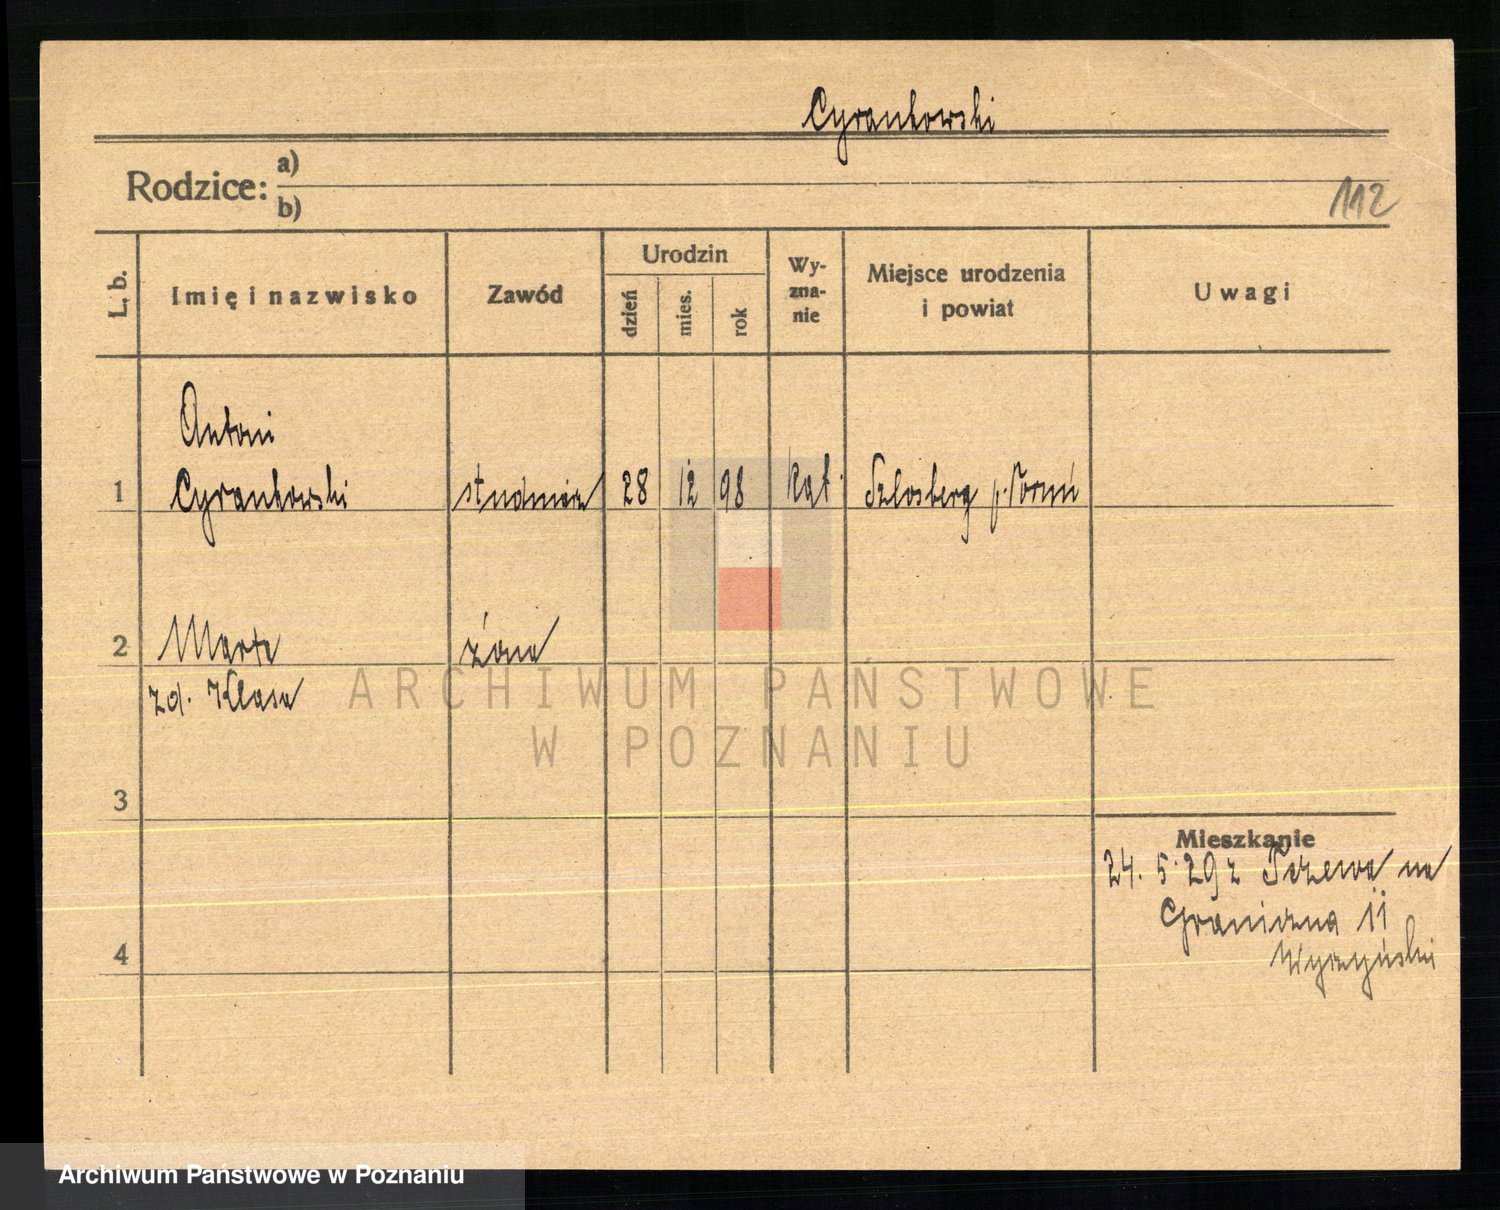 Cyrankowski
Rodzice: a)
b)
112
L. b.
Imię i nazwisko
Zawód
Urodzin
dzień
mies.
rok
Wy-
zna-
nie
Miejsce urodzenia
i powiat
Uwagi
Antoni
1 Cyrankowski studniarz 28 12 98 kat. Szlosberg p. Toruń
2 Marta żona
zd. Klasa
ARCHIWUM PAŃSTWOWE
W POZNANIU
3
Mieszkanie
24. 5. 29 z Tczewa na
Graniczna 11
4
Wyrzyński
Archiwum Państwowe w Poznaniu